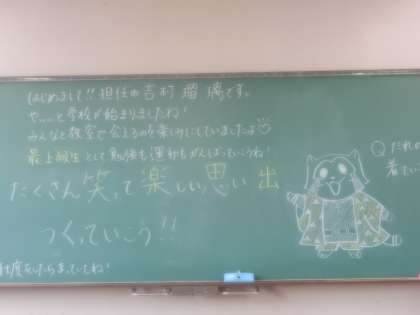 はじめまして!! 担任の吉村 瑠璃です。
や……と学校が始まりましたね!
みんなと教室で会えるのを楽しみにしていましたよ♡
最上級生として勉強も運動もがんばっていこうね!
たくさん笑って楽しい思い出
つくっていこう!!
Q だれの
着
仕度をしたらまっていてね!